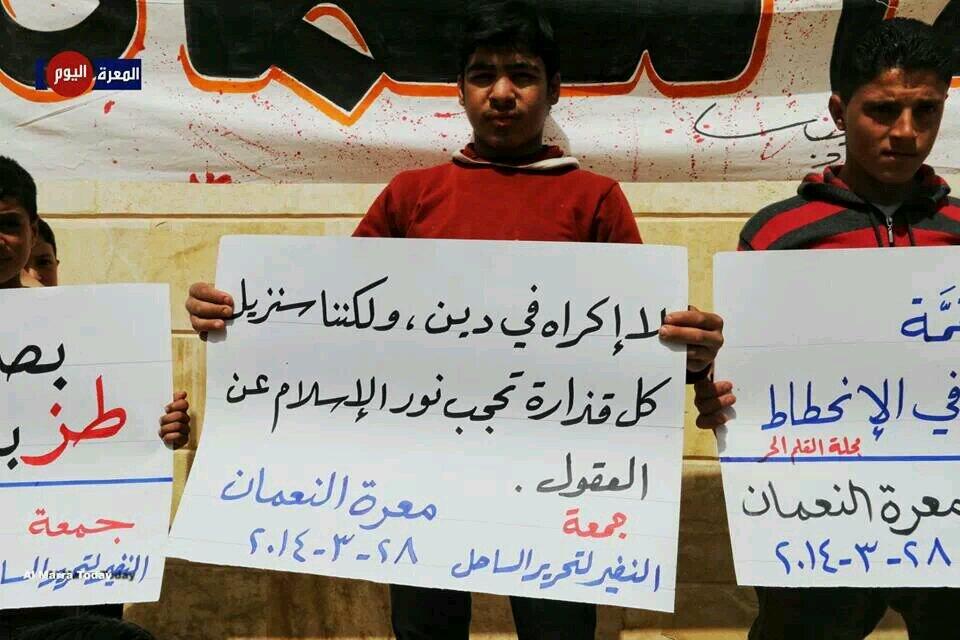 المعرة اليوم
لا إكراه في دين ، ولكننا سنزيل
كل قذارة تحجب نور الإسلام عن
العقول .
جمعة
النفير لتحرير الساحل
معرة النعمان
٢٨-٣-٢٠١٤
في الإنحطاط
مجلة القلم الحر
معرة النعمان
٢٨-٣-٢٠١٤
طز
جمعة
النفير لتحرير
Al Marra Today